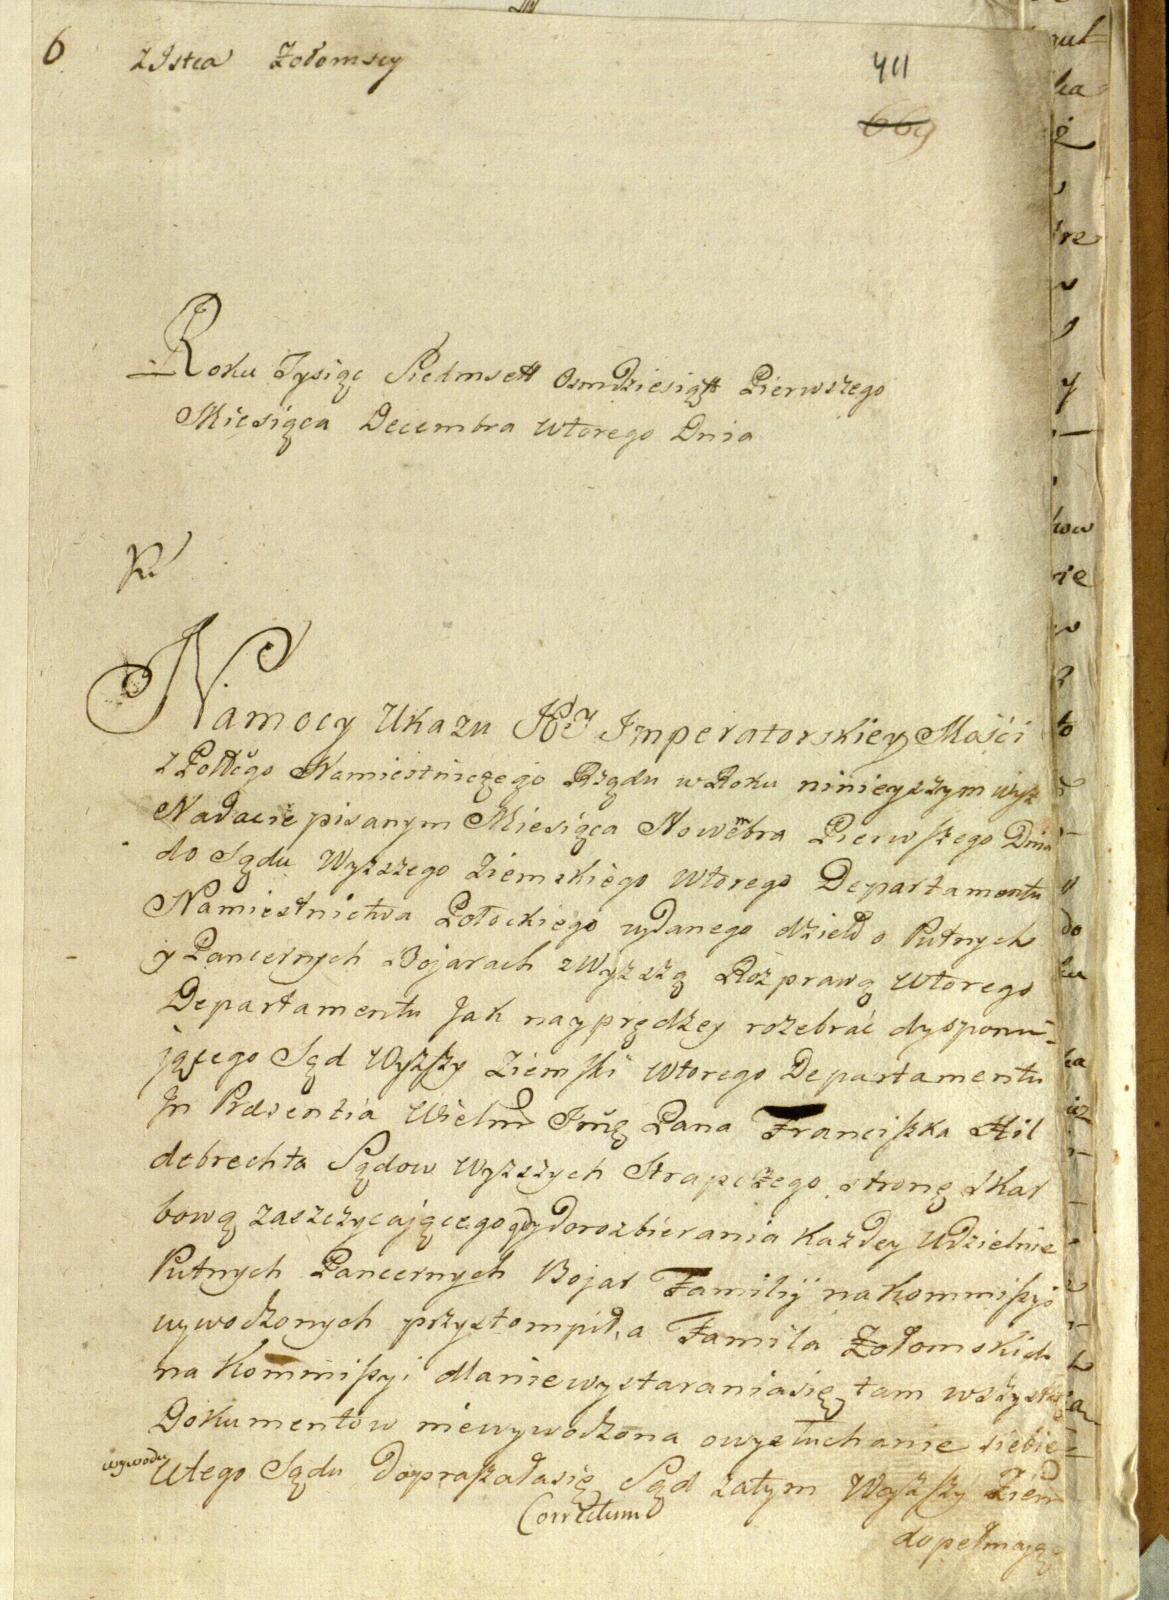 6 Żołomscy
411
669
Roku Tysiąc Siedmset Osmdziesiąt Pierwszego
Miesiąca Decembra wtorego Dnia
Na mocy Ukazu Imperatorskiey Mości
z Połłgo Namiestniczego Rządu w Roku ninieyszym wyż
Nadacie pisanym Miesiąca Nowembra Pierwszego Dnia
do Sądu Wyższego Ziemskiego wtorego Departamentu
Namiestnictwa Połockiego wydanego dzieło o Putnych
y Pancernych Bojarach z Wyższą Rozprawą wtorego
Departamentu jak nayprędzey rozebrać dysponu-
jącego Sąd Wyższy Ziemski wtorego Departamentu
Jn Præsentia Wielm Jmć Pana Franciszka Hil
debrechta Sądow Wyższych Strapczego stronę Skar
bową zaszczycającego gdy do rozbierania każdey Udzielnie
Putnych Pancernych Bojar Familij na Kommissyi
wywodzonych przystompił, a Familia Żołomskich
na Kommissyi dla niewystarania się tam wszystkich
Dokumentow niewywodzona o wysłuchanie siebie
wywodu U tego Sądu dopraszała się Sąd zatym Wyższy Ziem
Correctum
dopełniając